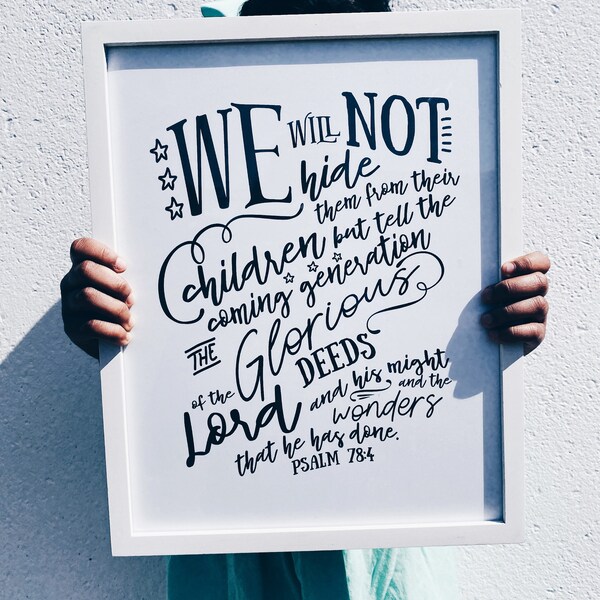 WE WILL NOT
hide
them from their
Children but tell the
coming generation
THE Glorious
DEEDS
of the Lord and his might
and the
wonders
that he has done.
PSALM 78:4